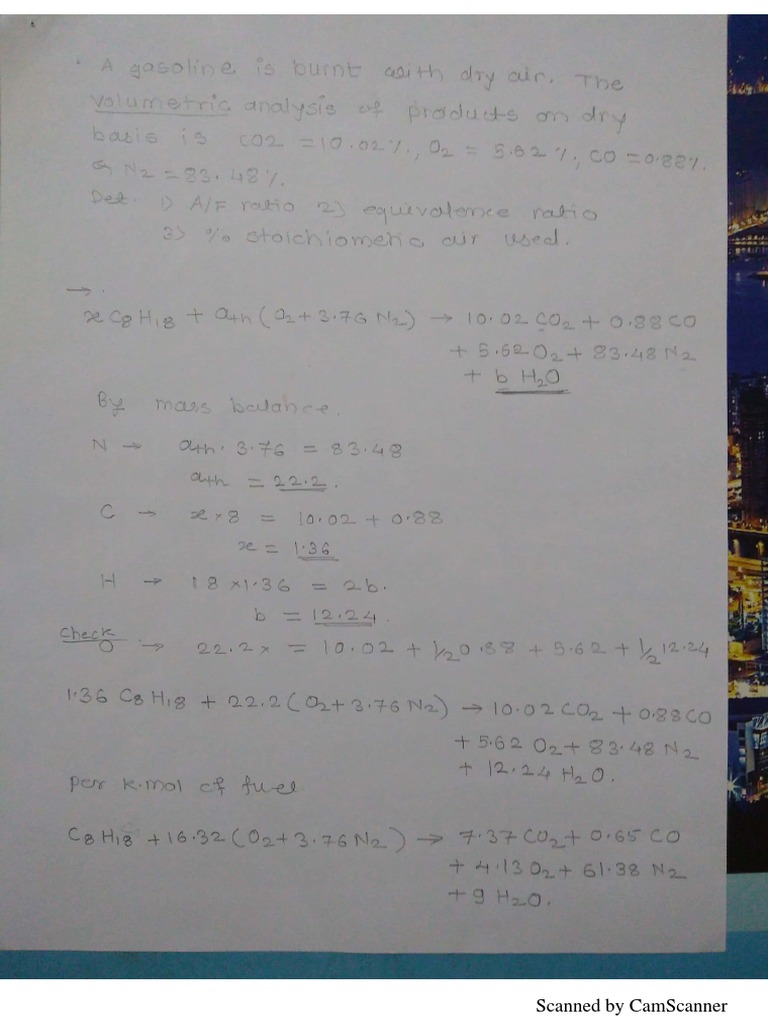 A gasoline is burnt with dry air. The
volumetric analysis of products on dry
basis is CO2 = 10.02%, O2 = 5.62%, CO = 0.88%.
& N2 = 83.48%.
Det. 1) A/F ratio 2) equivalence ratio
3) % stoichiometic air used.
→.
x C8H18 + ath (O2 + 3.76 N2) → 10.02 CO2 + 0.88 CO
+ 5.62 O2 + 83.48 N2
+ b H2O
By mass balance.
N → ath. 3.76 = 83.48
ath = 22.2.
C → x × 8 = 10.02 + 0.88
x = 1.36
H → 18 × 1.36 = 2b.
b = 12.24.
Check
O → 22.2 × = 10.02 + 1/2 0.88 + 5.62 + 1/2 12.24
1.36 C8H18 + 22.2 (O2 + 3.76 N2) → 10.02 CO2 + 0.88 CO
+ 5.62 O2 + 83.48 N2
+ 12.24 H2O.
per k.mol of fuel
C8H18 + 16.32 (O2 + 3.76 N2) → 7.37 CO2 + 0.65 CO
+ 4.13 O2 + 61.38 N2
+ 9 H2O.
Scanned by CamScanner